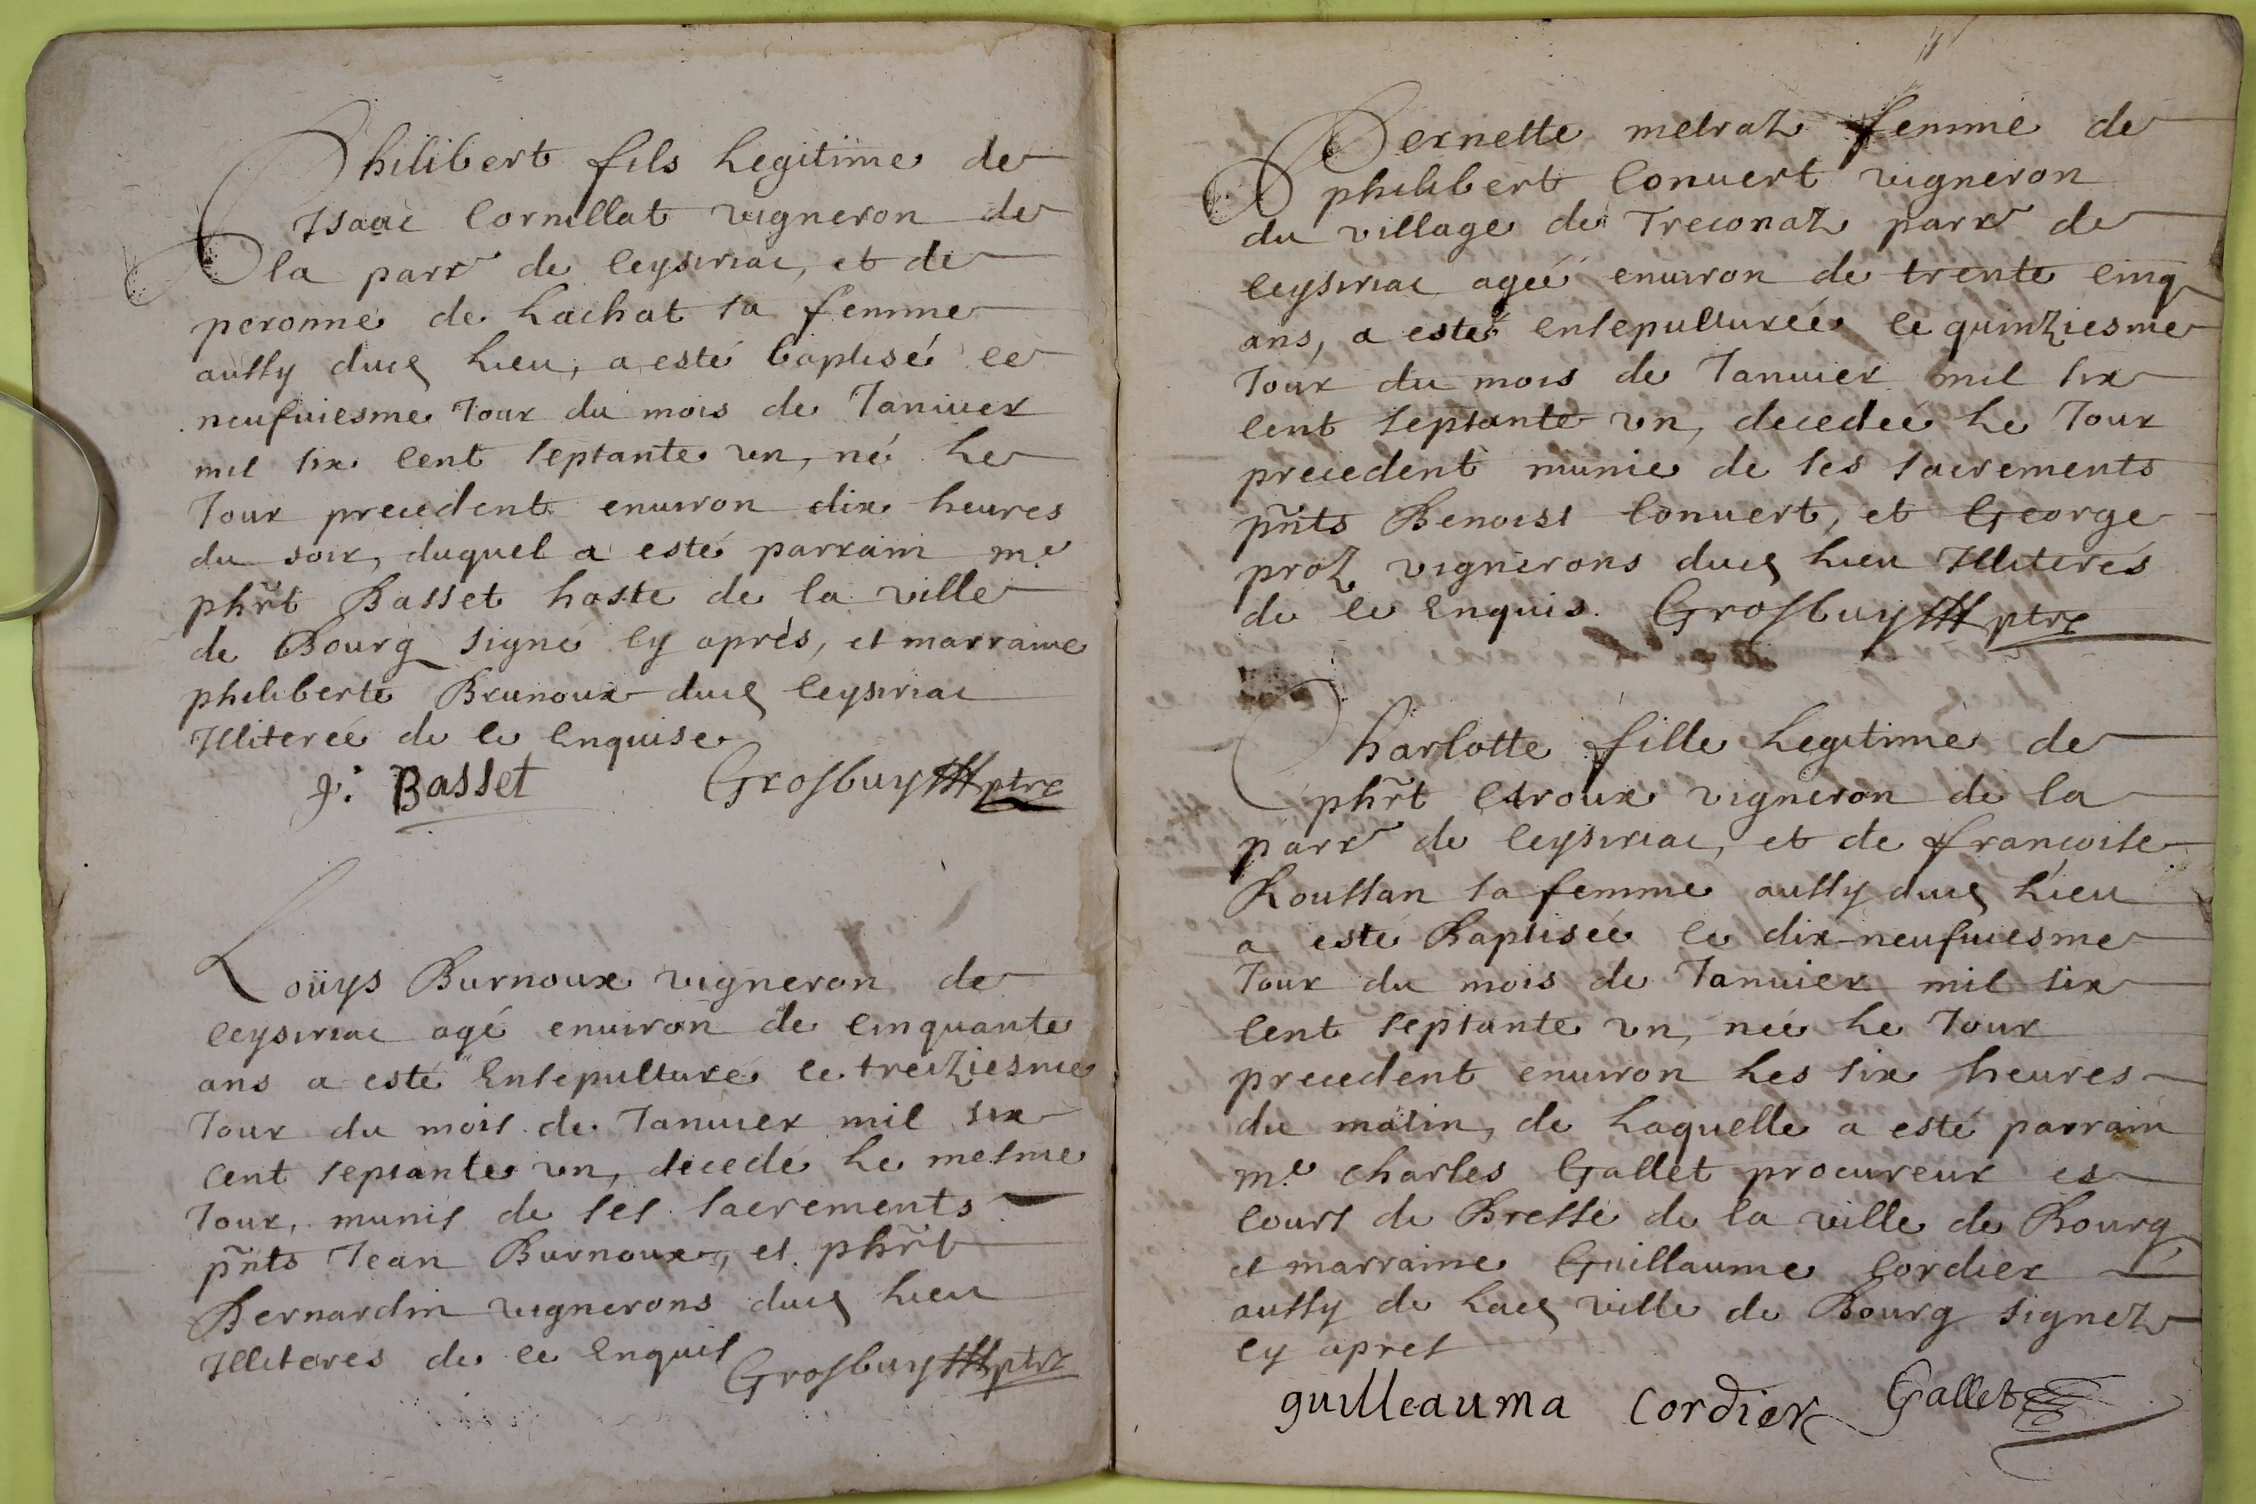 Philibert fils Legitime de
Isaac Cornillat vigneron de
la parr de Ceysiriac, et de
peronne de Lachat sa femme
aussy dud Lieu, a esté baptisé ce
neufuiesme Jour du mois de Januier
mil six Cent Septante vn, né Le
Jour precedent enuiron dix heures
du soir, duquel a esté parrain m.e
phr̃t Basset hoste de la ville
de Bourg signé Cy aprés, et marraine
philiberte Brunoux dud Ceysiriac
Illiterée de Ce Enquise
p. Basset Grosbuy ptre
Loüys Burnoux vigneron de
Ceysiriac agé enuiron de Cinquante
ans a esté Ensepulturé Ce treiziesme
Jour du mois de Januier mil six
Cent Septante vn, decedé Le mesme
Jour, munis de ses Sacrements
pñts Jean Burnoux, et phr̃t
Bernardin vignerons dud Lieu
Illiterés de Ce Enquis Grosbuy ptre
Pernette metraz femme de
philibert Conuert vigneron
du village de Treconaz parr de
Ceysiriac ageé enuiron de trente Cinq
ans, a esté Ensepulturéé Ce quinziesme
Jour du mois de Januier mil six
Cent Septante vn, decedeé Le Jour
precedent munie de ses Sacrements
pñts Benoist Conuert, et George
proz vignerons dud Lieu Illiterés
de Ce Enquis. Grosbuy ptre
Charlotte fille Legitime de
phr̃t Cstroux vigneron de la
parr de Ceysiriac, et de francoise
Roussan sa femme aussy dud Lieu
a esté Baptiséé Ce dix-neufuiesme
Jour du mois de Januier mil six
Cent Septante vn, neé Le Jour
precedent enuiron Les six heures
du matin, de Laquelle a esté parrain
m.e Charles Gallet procureur es
Cours de Bresse de la ville de Bourg
et marraine Guillaume Cordier
aussy de Lad ville de Bourg signez
Cy apres
guilleauma Cordier Gallet